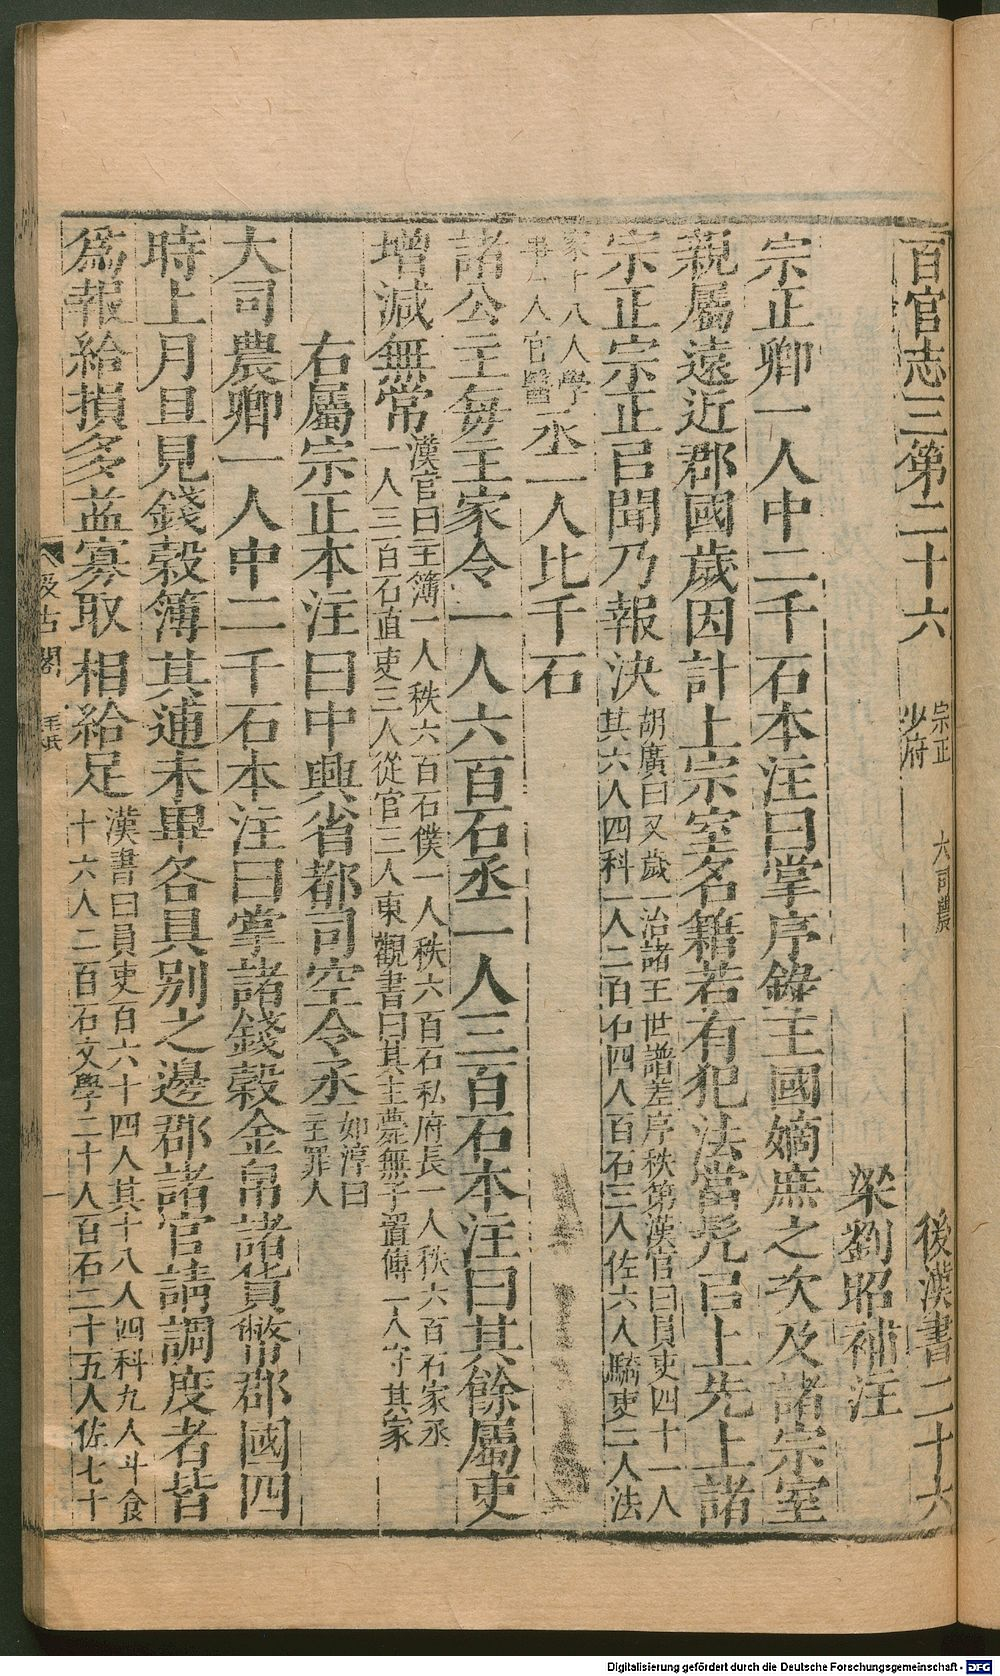 百官志三第二十六 宗正 大司農 少府 後漢書二十六
梁劉昭補注
宗正卿一人中二千石本注曰掌序錄王國嫡庶之次及諸宗室
親屬遠近郡國歲因計上宗室名籍若有犯法當髡㠯上先上諸
宗正宗正㠯聞乃報決
胡廣曰又歲一治諸王世譜差序秩第漢官曰員吏四十一人
其六人四科一人二百石四人百石三人佐六人騎吏二人法
家十八人學
事一人官醫
丞一人比千石
諸公主每主家令一人六百石丞一人三百石本注曰其餘屬吏
增減無常
漢官曰主簿一人秩六百石僕一人秩六百石私府長一人秩六百石家丞
一人三百石直吏三人從官三人東觀書曰其主薨無子置傅一人守其家
右屬宗正本注曰中興省都司空令丞
如淳曰
主罪人
大司農卿一人中二千石本注曰掌諸錢穀金帛諸貨幣郡國四
時上月旦見錢穀簿其逋未畢各具別之邊郡諸官請調度者皆
爲報給損多益寡取相給足
漢書曰員吏百六十四人其十八人四科九人斗食
十六人二百石文學二十人百石二十五人佐七十
汲古閣
毛氏
一
Digitalisierung gefördert durch die Deutsche Forschungsgemeinschaft - DFG